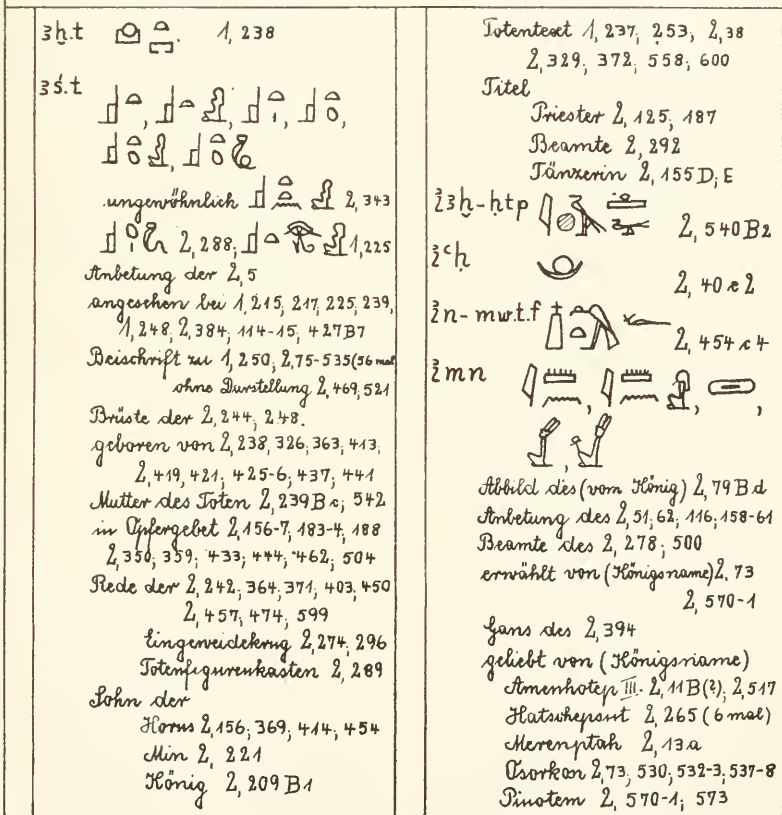 ꜣḫ.t 𓈌 1, 238
ꜣś.t
ungewöhnlich 2, 343
2, 288; 1, 225
Anbetung der 2, 5
angesehen bei 1, 215, 217, 225, 239,
1, 248, 2, 384; 114-15, 427B7
Beischrift zu 1, 250; 2, 75-535 (56 mal
ohne Darstellung 2, 469, 521
Brüste der 2, 244, 248.
geboren von 2, 238, 326, 363, 413,
2, 419, 421; 425-6; 437; 441
Mutter des Toten 2, 239Bc; 542
in Opfergebet 2, 156-7, 183-4, 188
2, 350, 359, 433, 444, 462, 504
Rede der 2, 242, 364, 371, 403, 450
2, 457, 474, 599
Eingeweidekrug 2, 274, 296
Totenfigurenkasten 2, 289
Sohn der
Horus 2, 156; 369, 414, 454
Min 2, 221
König 2, 209B1
Totentext 1, 237, 253, 2, 38
2, 329, 372, 558, 600
Titel
Priester 2, 125, 187
Beamte 2, 292
Tänzerin 2, 155D; E
ꞽꜣḫ-ḥtp 2, 540B2
ꞽꜥḥ 2, 40c2
ꞽn-mwt.f 2, 454c4
ꞽmn
Abbild des (vom König) 2, 79Bd
Anbetung des 2, 51; 62; 116, 158-61
Beamte des 2, 278, 500
erwählt von (Königsname) 2, 73
2, 570-1
Gans des 2, 394
geliebt von (Königsname)
Amenhotep III. 2, 11B(?), 2, 517
Hatschepsut 2, 265 (6 mal)
Merenptah 2, 13a
Osorkon 2, 73, 530, 532-3, 537-8
Pinotem 2, 570-1; 573